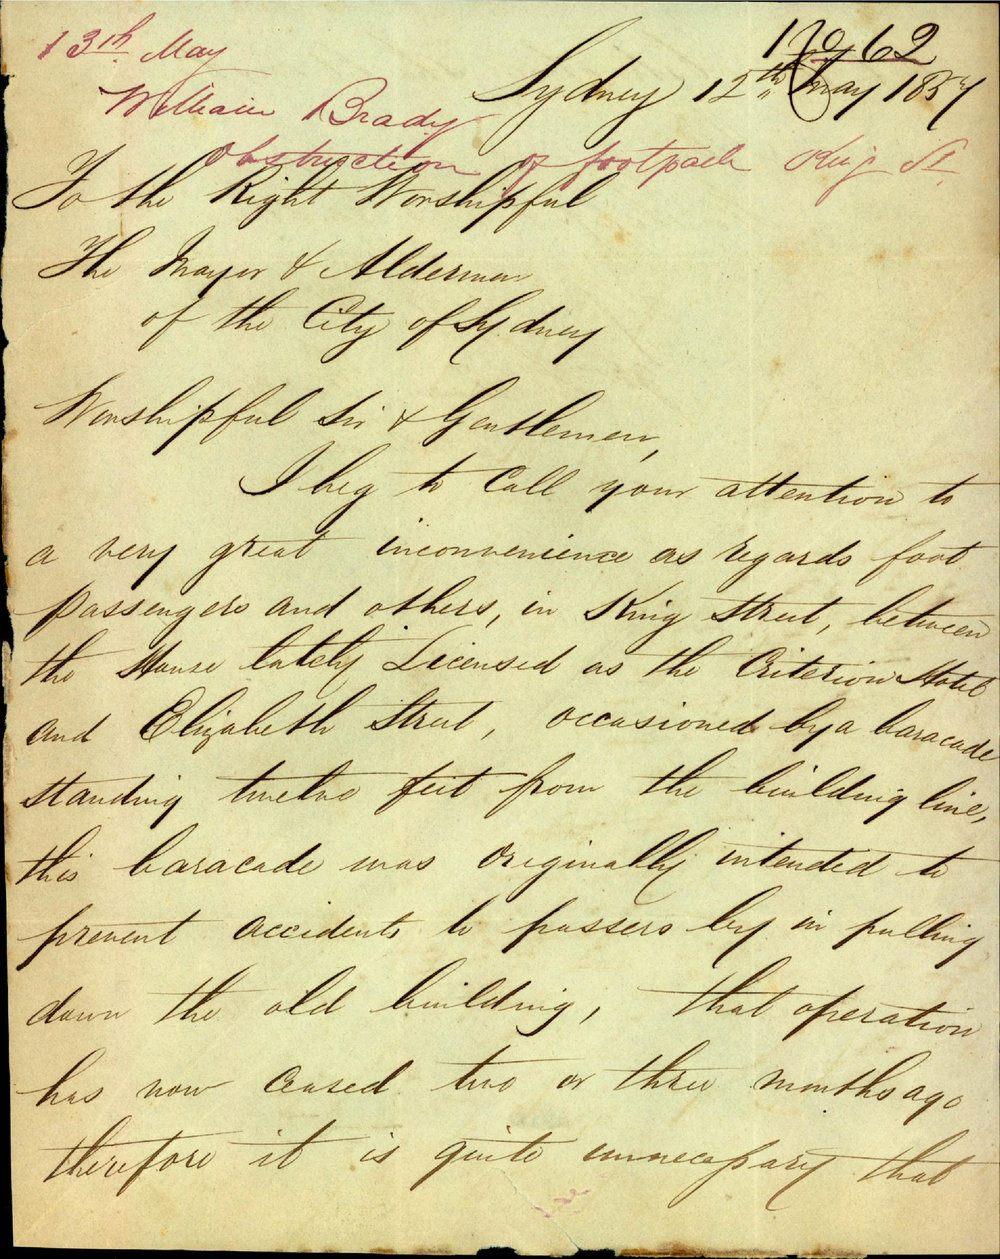 13th May
William Brady
Obstruction of footpath King St.
Sydney 12th May 1857
To the Right Worshipful
The Mayor & Aldermen
of the City of Sydney
Worshipful Sir & Gentlemen,
I beg to Call your attention to
a very great inconvenience as regards foot
passengers and others, in King Street, between
the House lately Licensed as the Criterion Hotel
and Elizabeth Street, occasioned by a baracade
standing twelve feet from the building line,
this baracade was originally intended to
prevent accidents to passers by in pulling
down the old building, that operation
has now ceased two or three months ago
therefore it is quite unnecessary that